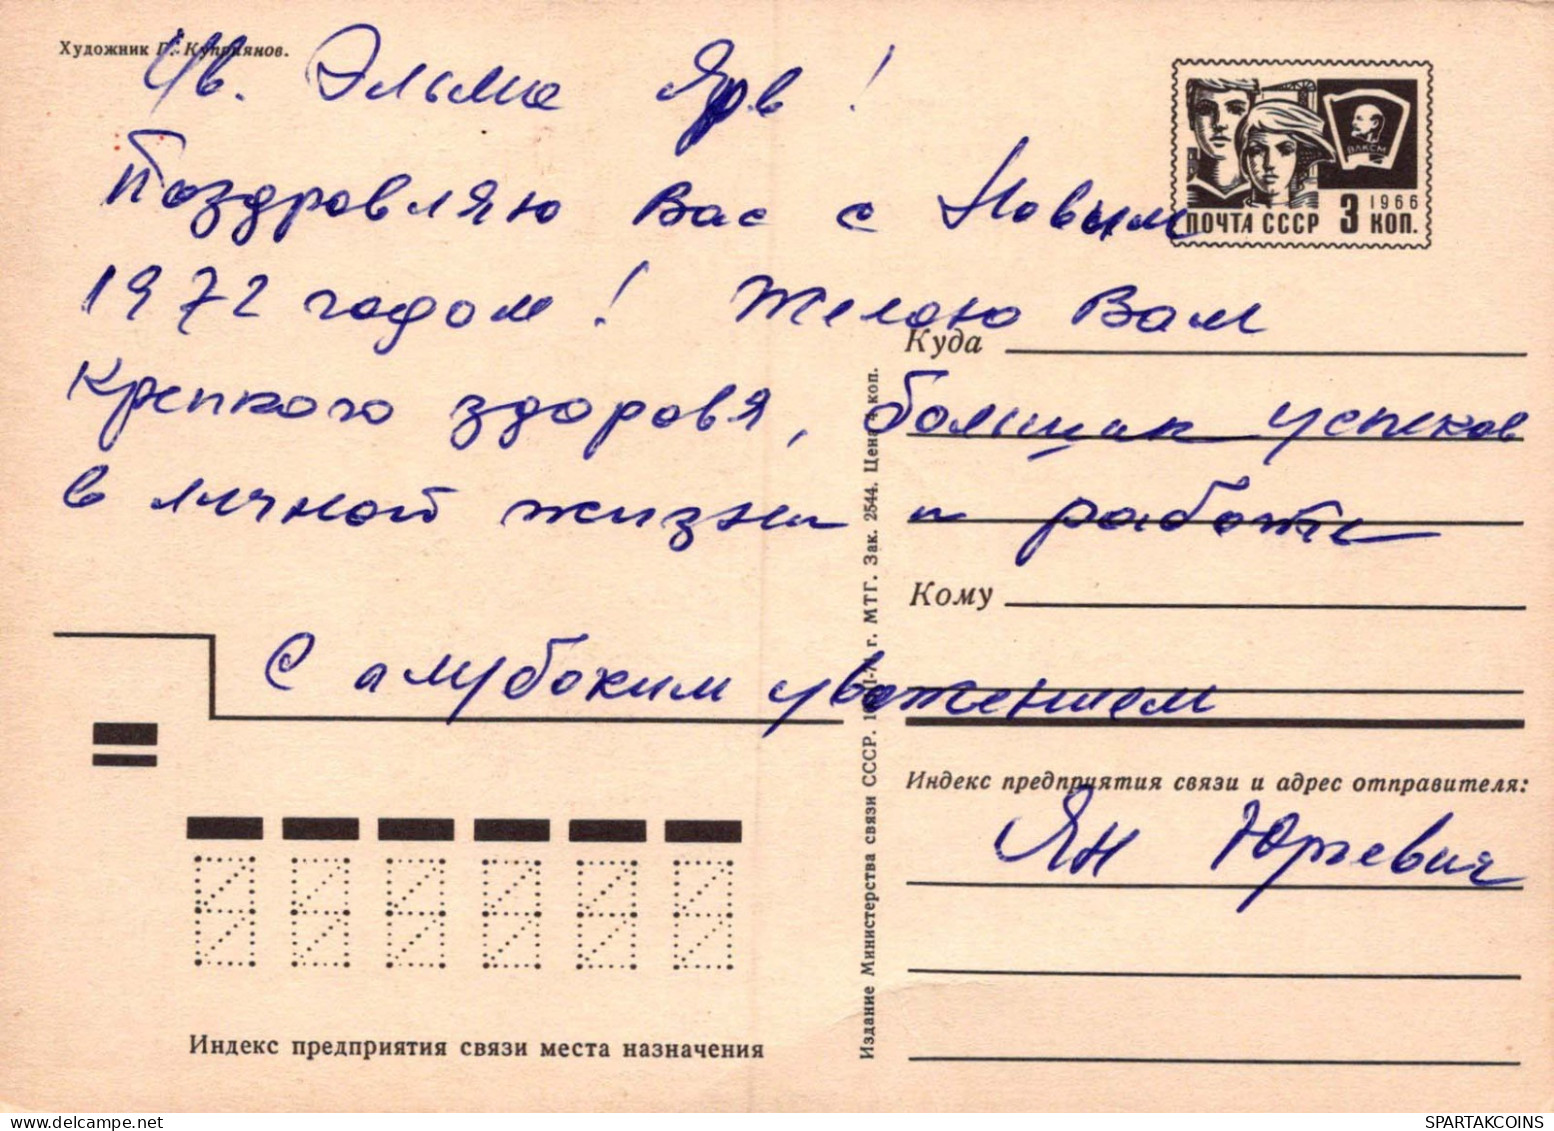 Художник П. Куприянов.
Ув. Эльма Ярв!
Поздравляю Вас с Новым
1972 годом! Желаю Вам
крепкого здоровя, больших успехов
в личной жизни и работе
С глубоким уважением
Ян Юрьевич
ВЛКСМ
1966
ПОЧТА СССР 3 КОП.
Куда
Кому
Индекс предприятия связи и адрес отправителя:
Издание Министерства связи СССР. г. МТГ. Зак. 2544. Цена 4 коп.
Индекс предприятия связи места назначения
SPARTAKCOINS